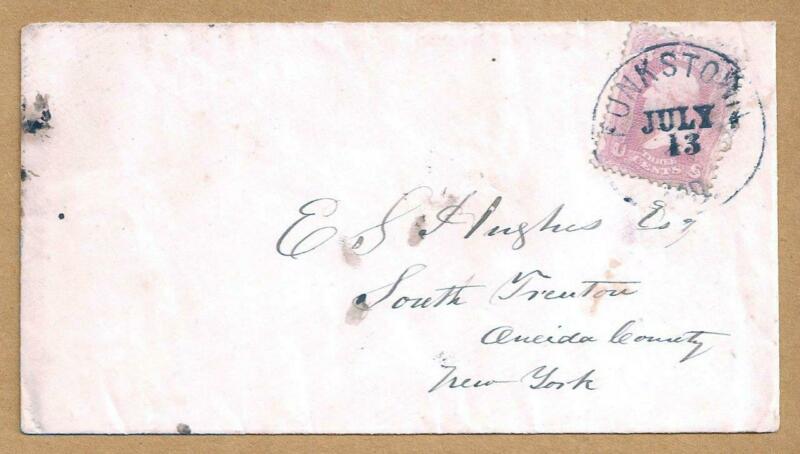 FUNKSTOWN
JULY
13
U S
THREE
CENTS
E S Hughes Esq
South Trenton
Oneida County
New York